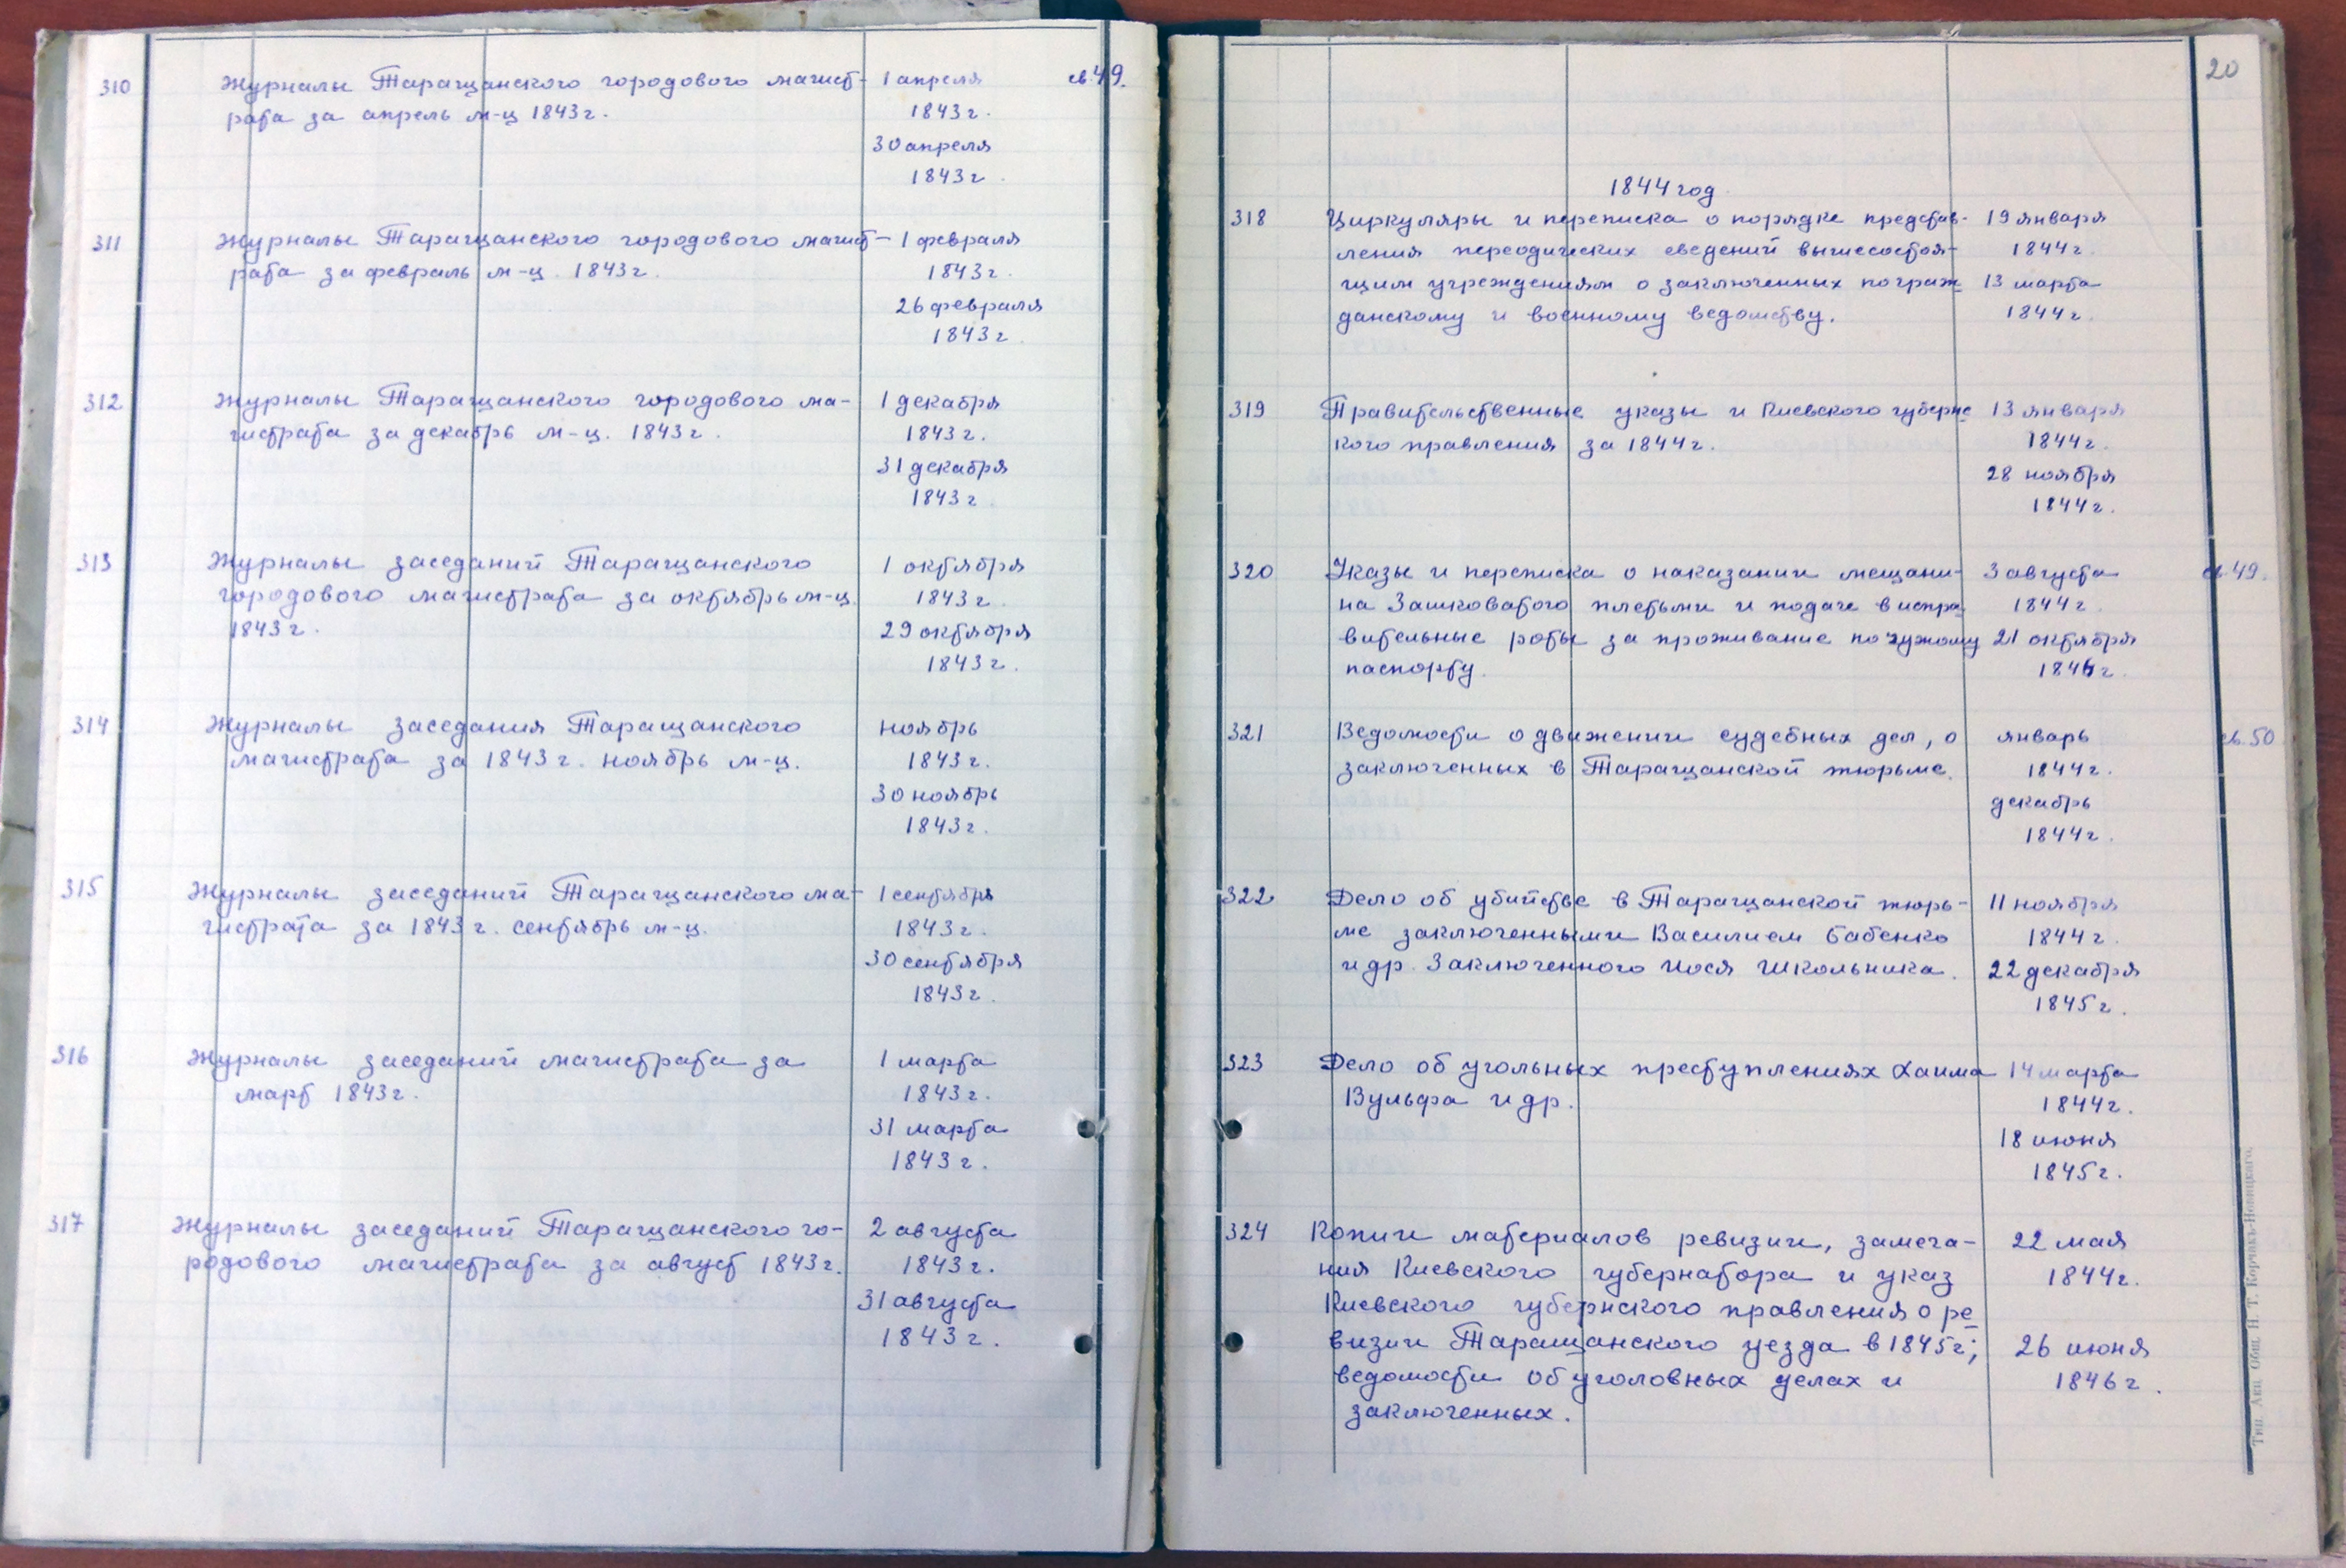 310 Журналы Таращанского городового магист- 1 апреля св.49.
рата за апрель м-ц 1843г. 1843г.
30 апреля
1843г.
311 Журналы Таращанского городового магист- 1 февраля
рата за февраль м-ц. 1843г. 1843г.
26 февраля
1843г.
312 Журналы Таращанского городового ма- 1 декабря
гистрата за декабрь м-ц. 1843г. 1843г.
31 декабря
1843г.
313 Журналы заседаний Таращанского 1 октября
городового магистрата за октябрь м-ц. 1843г.
1843г. 29 октября
1843г.
314 Журналы заседания Таращанского ноябрь
магистрата за 1843г. ноябрь м-ц. 1843г.
30 ноябрь
1843г.
315 Журналы заседаний Таращанского ма- 1 сентября
гистрата за 1843г. сентябрь м-ц. 1843г.
30 сентября
1843г.
316 Журналы заседаний магистрата за 1 марта
март 1843г. 1843г.
31 марта
1843г.
317 Журналы заседаний Таращанского го- 2 августа
родового магистрата за август 1843г. 1843г.
31 августа
1843г.
20
1844 год
318 Циркуляры и переписка о порядке представ- 19 января
ления переодических сведений вышесостоя- 1844г.
щим учреждениям о заключенных по граж- 13 марта
данскому и военному ведомству. 1844г.
319 Правительственные указы и Киевского губернс- 13 января
кого правления за 1844г. 1844г.
28 ноября
1844г.
320 Указы и переписка о наказании мещани- 3 августа св.49.
на Зашковатого плетьми и подаче в испра- 1844г.
вительные роты за проживание по чужому 21 октября
паспорту. 1844г.
321 Ведомости о движении судебных дел, о январь св.50
заключенных в Таращанской тюрьме. 1844г.
декабрь
1844г.
322 Дело об убийстве в Таращанской тюрь- 11 ноября
ме заключенными Василием Бабенко 1844г.
и др. Заключенного Иося Школьника. 22 декабря
1845г.
323 Дело об угольных преступлениях Хаима 14 марта
Вульфа и др. 1844г.
18 июня
1845г.
324 Копии материалов ревизии, замеча- 22 мая
ния Киевского губернатора и указ 1844г.
Киевского губернского правления о ре-
визии Таращанского уезда в 1845г; 26 июня
ведомости об уголовных делах и 1846г.
заключенных.
Тип. Акц. Общ. Н. Т. Корчакъ-Новицкаго,